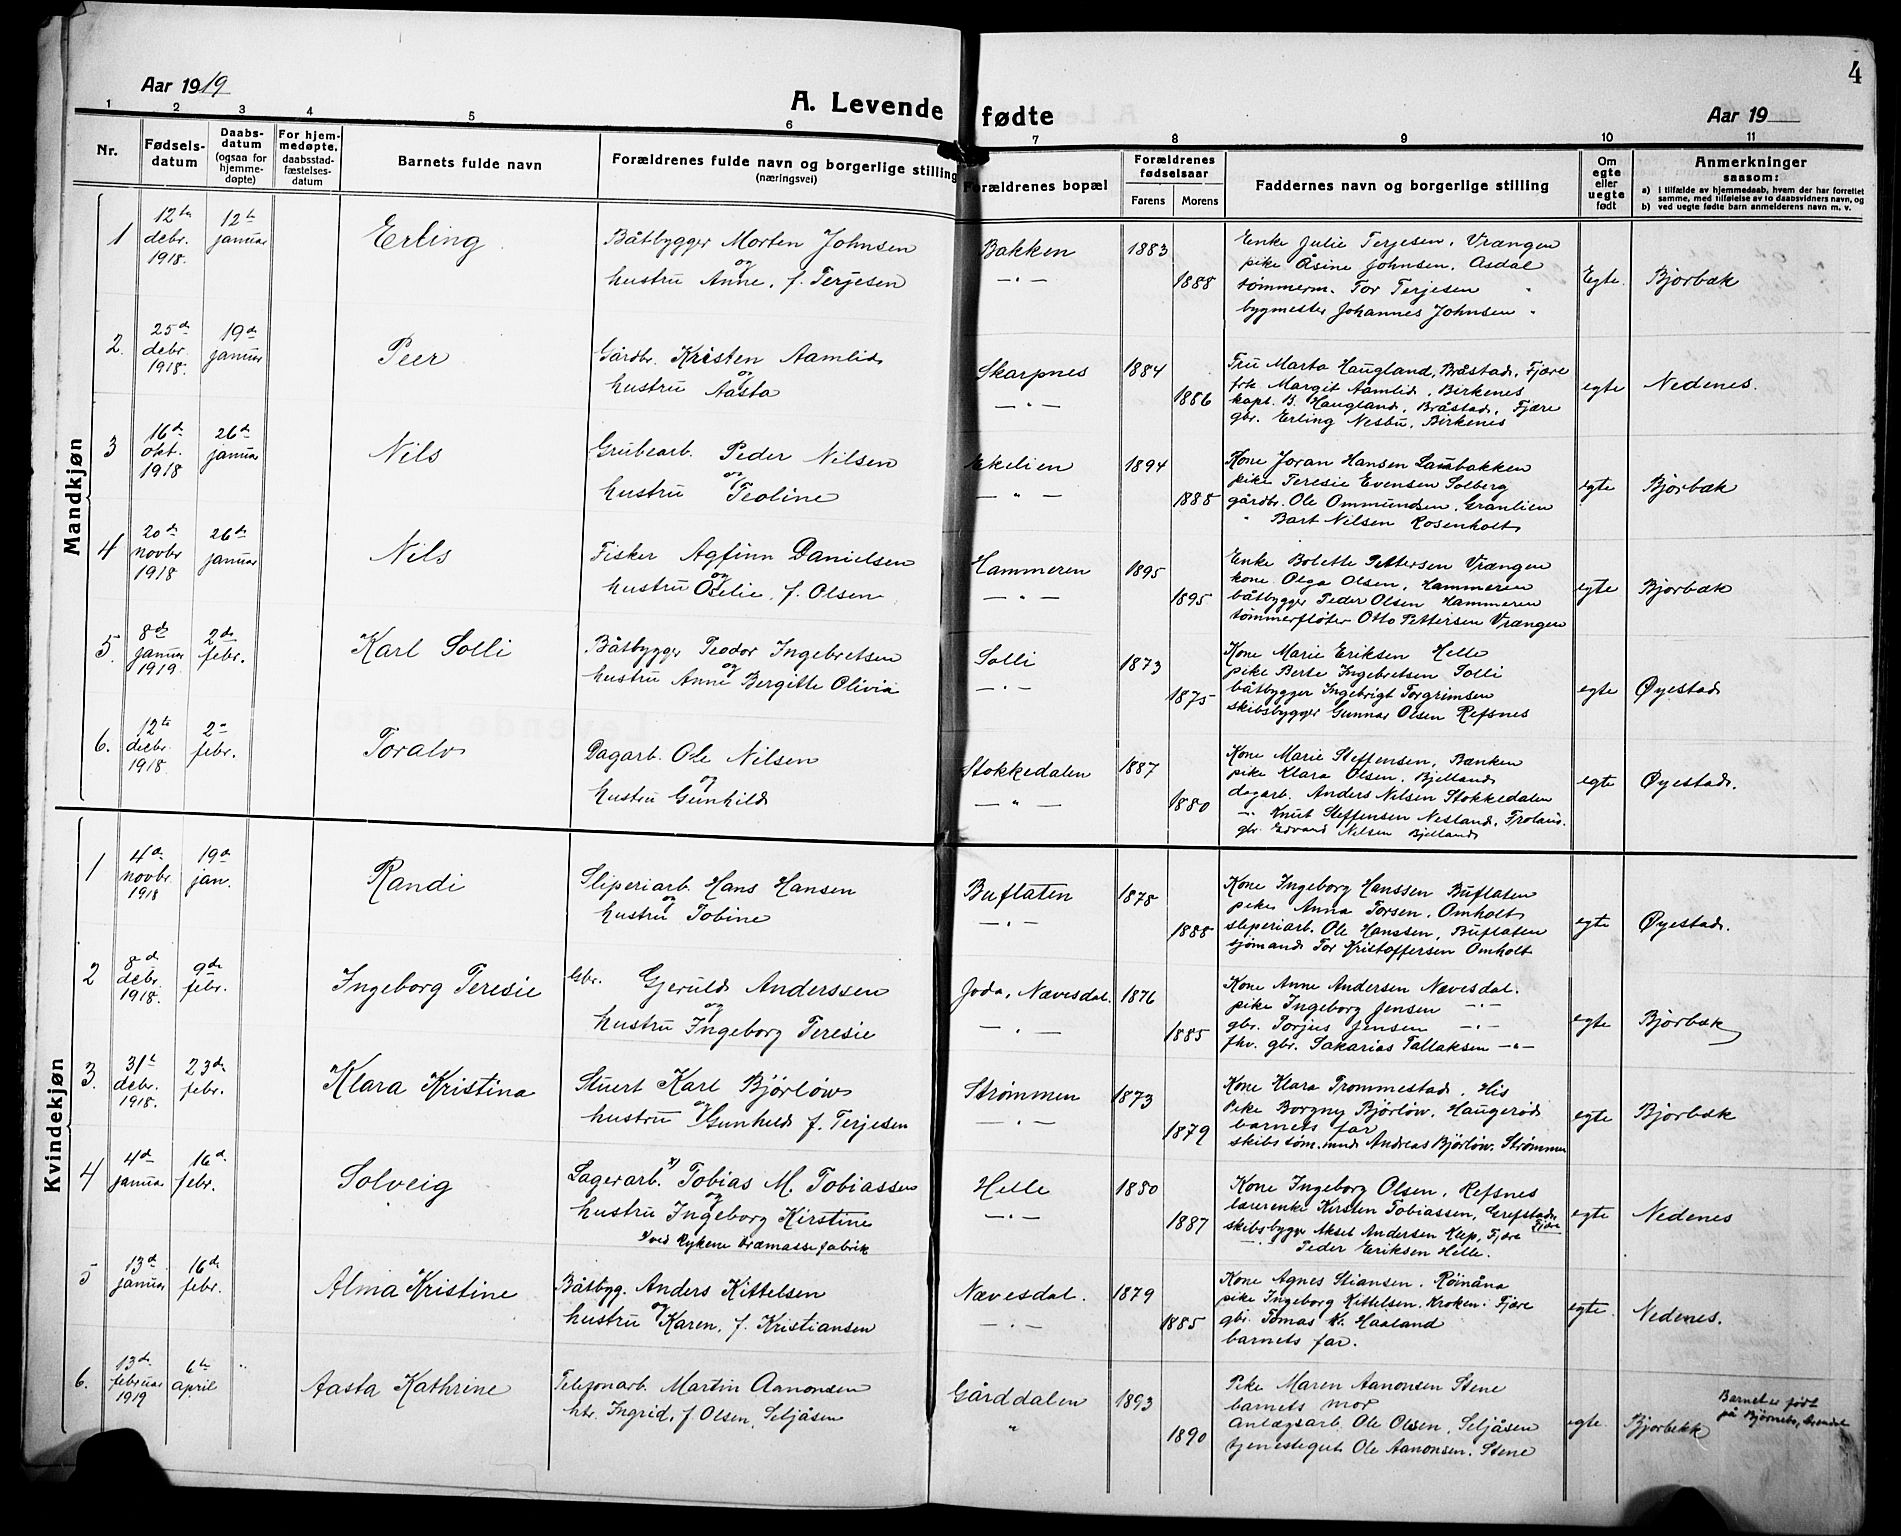 4
Aar 1919
A. Levende fødte
Aar 19
1 2 3 4 5 6 7 8 9 10 11
Nr.
Fødsels-
datum
Daabs-
datum
(ogsaa for
hjemme-
døpte)
For hjem-
medøpte.
daabsstad-
fæstelses-
datum
Barnets fulde navn
Forældrenes fulde navn og borgerlige stilling
(næringsvei)
Forældrenes bopæl
Forældrenes
fødselsaar
Farens Morens
Faddernes navn og borgerlige stilling
Om
egte
eller
uegte
født
Anmerkninger
saasom:
a) i tilfælde av hjemmedaab, hvem der har forrettet
samme, med tilføielse av to daabsvidners navn, og
b) ved uegte fødte barn anmelderens navn m. v.
Mandkjøn
1
12te debr. 1918
12te januar
Erling
Båtbygger Morten Johnsen
og
hustru Anne, f. Terjesen
Bakken
— " —
1883
1888
Enke Julie Terjesen, Vrængen
pike Åsine Johnsen, Asdal
tømmerm. Tor Terjesen "
bygmester Johannes Johnsen "
Egte.
Bjorbæk
2.
25de debr. 1918.
19de januar
Peer
Gårdbr. Kristen Aamlid
og
hustru Aasta
Skarpnes
— " —
1884
1886
Fru Marta Haugland, Bråstad, Fjære
frk. Margit Aamlid, Birkenes
kapt. B. Haugland, Bråstad, Fjære
gbr. Erling Nesbu, Birkenes
egte
Nedenes.
3
16de okt. 1918
26de januar
Nils
Grubearb. Peder Nilsen
og
hustru Teoline
Ekelien
— " —
1894
1885
Kone Joran Hansen Laubakken
pike Teresie Evensen Solberg
gårdbr. Ole Ommundsen, Granlien
" Bart Nilsen Rosenholt
egte
Bjorbæk
4
20de novbr 1918
26de januar
Nils
Fisker Agfinn Danielsen
og
hustru Oselie, f. Olsen
Hammeren
— " —
1895
1895
Enke Bolette Pettersen Vrængen
kone Olga Olsen, Hammeren
båtbygger Peder Olsen Hammeren
tømmerfløter Otto Pettersen Vrængen
egte
Bjorbæk
5.
8de januar 1919
2de febr.
Karl Solli
Båtbygger Teodor Ingebretsen
og
hustru Anne Bergitte Olivia
Solli
— " —
1873
1875
Kone Marie Eriksen Helle
pike Berte Ingebretsen Solli
båtbygger Ingebrigt Torgrimsen
skibsbygger Gunnar Olsen Refsnes
egte
Øyestad
6.
12te debr. 1918
2de febr.
Toralv
Dagarb. Ole Nilsen
og
hustru Gunhild
Stokkedalen
— " —
1887
1880
Kone Marie Steffensen, Bænken
pike Klara Olsen, Bjelland
dagarb. Anders Nilsen Stokkedalen
— " Knut Steffensen Nesland, Frolans.
gbr. Edvard Nilsen Bjelland
egte
Øyestad.
Kvindekjøn
1
4de novbr. 1918
19de jan.
Randi
Sliperiarb. Hans Hansen
og
hustru Tobine
Buflaten
— " —
1878
1888
Kone Ingeborg Hanssen Buflaten
pike Anna Torsen, Omholt
sliperiarb. Ole Hanssen, Buflaten
sjømand Tor Kristoffersen Omholt
egte
Øyestad.
2
8de debr. 1918.
9de febr.
Ingeborg Teresie
Gbr. Gjeruld Anderssen
og
hustru Ingeborg Teresie
Joda, Nævesdal.
— " —
1876
1885
Kone Anne Andersen Nævesdal.
pike Ingeborg Jensen — " —
gbr. Torjus Jensen — " —
fhv. gbr. Sakarias Tallaksen — " —
egte
Bjorbæk
3.
31te debr. 1918.
23de febr.
Klara Kristina
Stuert Karl Bjørlow
og
hustru Gunhild f. Terjesen
Strømmen
— " —
1873
1879
Kone Klara Trommestad, His
Pike Borgny Bjørlow, Haugerød
barnets far
skibstøm.mnd Andreas Bjørlow, Strømmen
egte
Bjorbæk
4
4de januar
16de febr.
Solveig
Lagerarb. x) Tobias M. Tobiassen
og
hustru Ingeborg Kirstine
x) ved Rykene træmassefabrik
Helle
— " —
1880
1887
Kone Ingeborg Olsen, Refsnes
lærerenke Kirsten Tobiassen, Grefstad, Fjære
skibsbygger Aksel Andersen Klep, Fjære
" Peder Eriksen Helle.
egte
Nedenes
5
13de januar
16de febr.
Alma Kristine
Båtbyg. Anders Kittelsen
og
hustru Karen, f. Kristiansen
Nævesdal.
— " —
1879
1885
Kone Agnes Stiansen. Röinåna
pike Ingeborg Kittelsen. Kroken. Fjære
gbr. Tomas K. Haaland
barnets far.
egte.
Nedenes.
6.
13de februar 1919
6te april
Aasta Kathrine
Telefonarb. Martin Aanonsen
htr. Ingrid, f. Olsen, Seljåsen
Gårddalen
"
1893
1890
Pike Maren Aanonsen Stene
barnets mor
anlægsarb. Ole Olsen, Seljåsen
tjenestegut Ole Aanonsen. Stene
egte.
Bjorbekk
Barnet er født
på Bjørnebo, Arendal